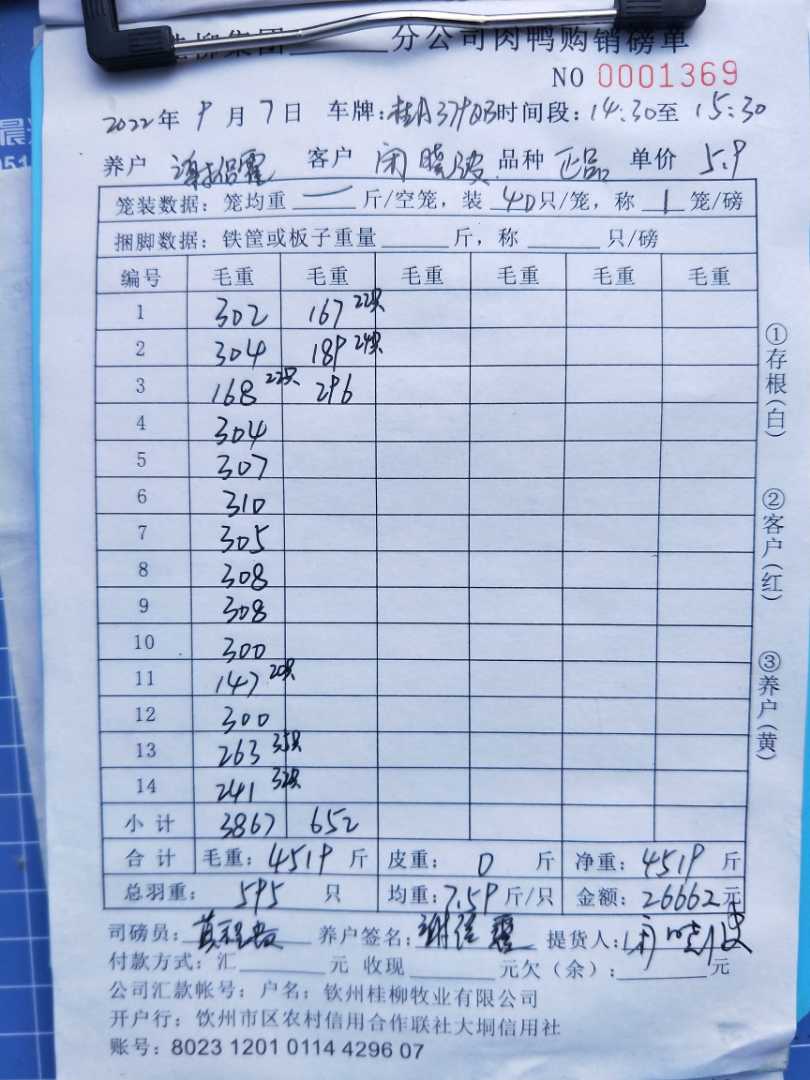 桂柳集团______分公司肉鸭购销磅单
NO 0001369
2022年 9月 7日 车牌: 时间段: 14:30至 15:30
养户 客户 闭晓波 品种 正品 单价 5.9
笼装数据: 笼均重 一 斤/空笼, 装 40只/笼, 称 1 笼/磅
捆脚数据: 铁筐或板子重量______斤, 称______只/磅
编号 毛重 毛重 毛重 毛重 毛重 毛重
1 302 167 22只
2 304 189 24只
3 168 22只 296
4 304
5 307
6 310
7 305
8 308
9 308
10 300
11 147 20只
12 300
13 263 35只
14 241 32只
小计 3867 652
合计 毛重: 4519 斤 皮重: 0 斤 净重: 4519 斤
总羽重: 595 只 均重: 7.59 斤/只 金额: 26662元
司磅员: 养户签名: 提货人: 闭晓波
付款方式: 汇______元 收现______元欠(余):______元
公司汇款帐号: 户名: 钦州桂柳牧业有限公司
开户行: 钦州市区农村信用合作联社大垌信用社
账号: 8023 1201 0114 4296 07
①存根(白)
②客户(红)
③养户(黄)